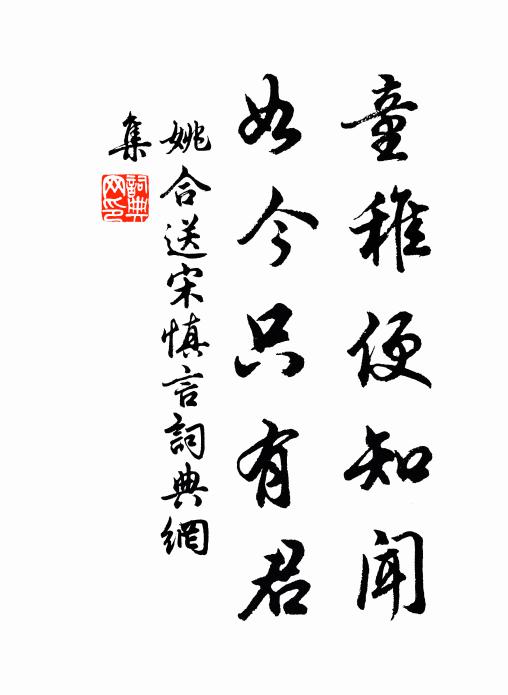 童稚便知聞
如今只有君
姚合送宋慎言詞典網
集
詞典網印